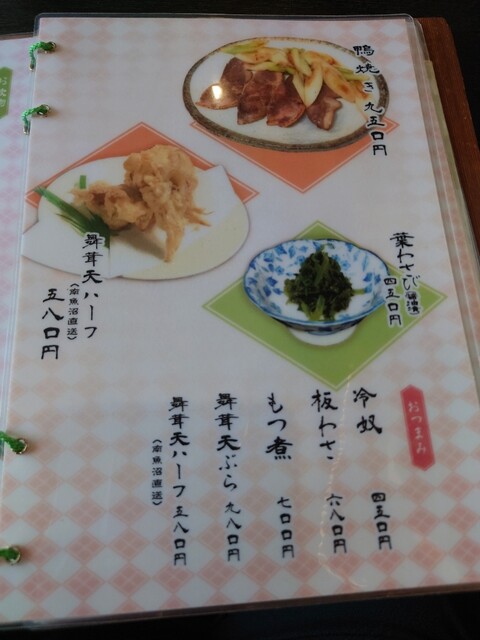 鴨焼き 九五〇円
葉わさび 醤油漬
四五〇円
舞茸天ハーフ
(南魚沼直送)
五八〇円
おつまみ
冷奴 四五〇円
板わさ 六八〇円
もつ煮 七〇〇円
舞茸天ぷら 九八〇円
舞茸天ハーフ 五八〇円
(南魚沼直送)